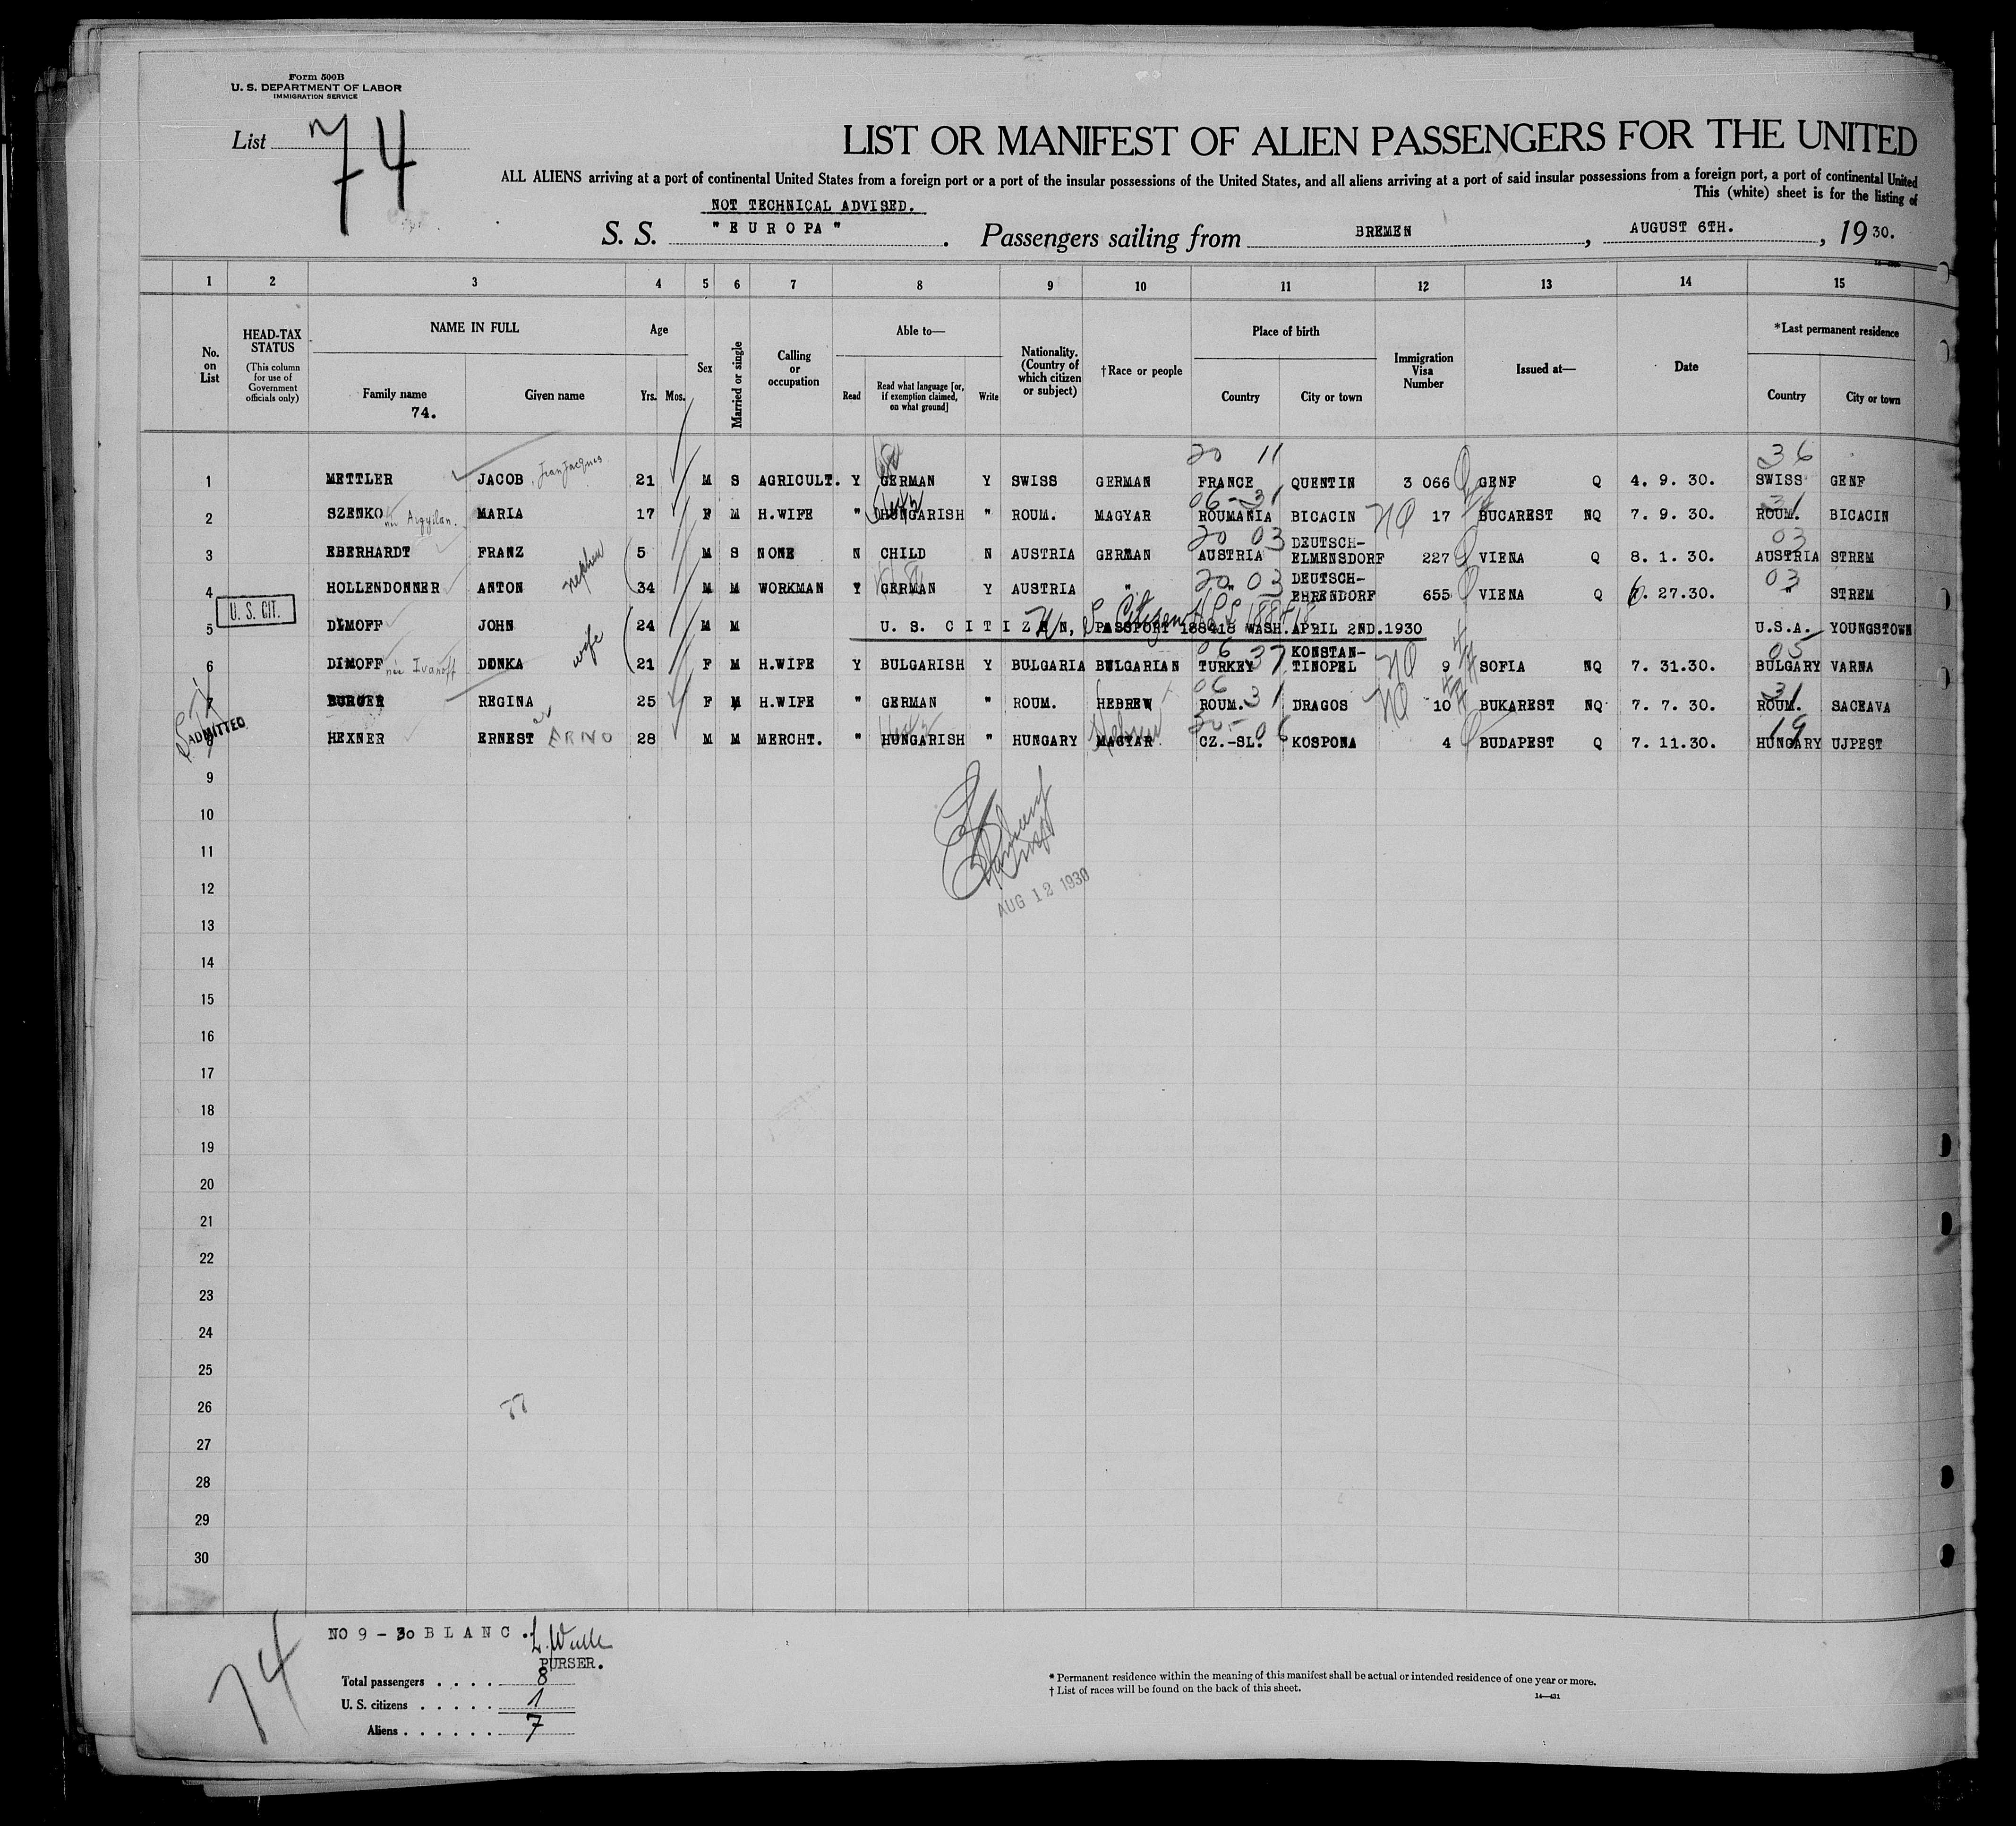 Form 500B
U. S. DEPARTMENT OF LABOR
IMMIGRATION SERVICE
List 74
LIST OR MANIFEST OF ALIEN PASSENGERS FOR THE UNITED
ALL ALIENS arriving at a port of continental United States from a foreign port or a port of the insular possessions of the United States, and all aliens arriving at a port of said insular possessions from a foreign port, a port of continental United
This (white) sheet is for the listing of
NOT TECHNICAL ADVISED.
S. S. "EUROPA". Passengers sailing from BREMEN, AUGUST 6TH., 1930.
1 2 3 4 5 6 7 8 9 10 11 12 13 14 15
No. on List
HEAD-TAX STATUS
(This column for use of Government officials only)
NAME IN FULL
Family name
74.
Given name
Age
Yrs. Mos.
Sex
Married or single
Calling or occupation
Able to—
Read
Read what language [or, if exemption claimed, on what ground]
Write
Nationality. (Country of which citizen or subject)
†Race or people
Place of birth
Country
City or town
Immigration Visa Number
Issued at—
Date
*Last permanent residence
Country
City or town
20 11 36
1 METTLER JACOB Jean Jacques 21 M S AGRICULT. Y GERMAN Y SWISS GERMAN FRANCE QUENTIN 3 066 GENF Q 4. 9. 30. SWISS GENF
06-31 31
2 SZENKO née Argyilan. MARIA 17 F M H.WIFE " HUNGARISH " ROUM. MAGYAR ROUMANIA BICACIN NQ 17 BUCAREST NQ 7. 9. 30. ROUM. BICACIN
20 03 03
3 EBERHARDT FRANZ nephew 5 M S NONE N CHILD N AUSTRIA GERMAN AUSTRIA DEUTSCH-ELMENSDORF 227 VIENA Q 8. 1. 30. AUSTRIA STREM
20 03 03
4 HOLLENDONNER ANTON 34 M M WORKMAN Y GERMAN Y AUSTRIA " " DEUTSCH-EHRENDORF 655 VIENA Q 6. 27.30. " STREM
U. S. CIT.
5 DIMOFF JOHN 24 M M U. S. CITIZEN, PASSPORT 188418 WASH.APRIL 2ND.1930 U.S.A. YOUNGSTOWN
wife 06 37 05
6 DIMOFF née Ivanoff DONKA 21 F M H.WIFE Y BULGARISH Y BULGARIA BULGARIAN TURKEY KONSTAN-TINOPEL NQ 9 SOFIA NQ 7. 31.30. BULGARY VARNA
06 31 31
7 BURGER REGINA 25 F M H.WIFE " GERMAN " ROUM. HEBREW ROUM. DRAGOS NQ 10 BUKAREST NQ 7. 7. 30. ROUM. SACEAVA
ADMITTED
06 19
8 HEXNER ERNEST or ERNO 28 M M MERCHT. " HUNGARISH " HUNGARY MAGYAR Hebrew CZ.-SL. KOSPONA 4 BUDAPEST Q 7. 11.30. HUNGARY UJPEST
9
10
11
12
AUG 12 1930
13
14
15
16
17
18
19
20
21
22
23
24
25
26
27
28
29
30
NO 9 - 30 BLANC.
PURSER.
Total passengers . . . . 8
U. S. citizens . . . . . 1
Aliens . . . . . . 7
74
* Permanent residence within the meaning of this manifest shall be actual or intended residence of one year or more.
† List of races will be found on the back of this sheet.
14—431